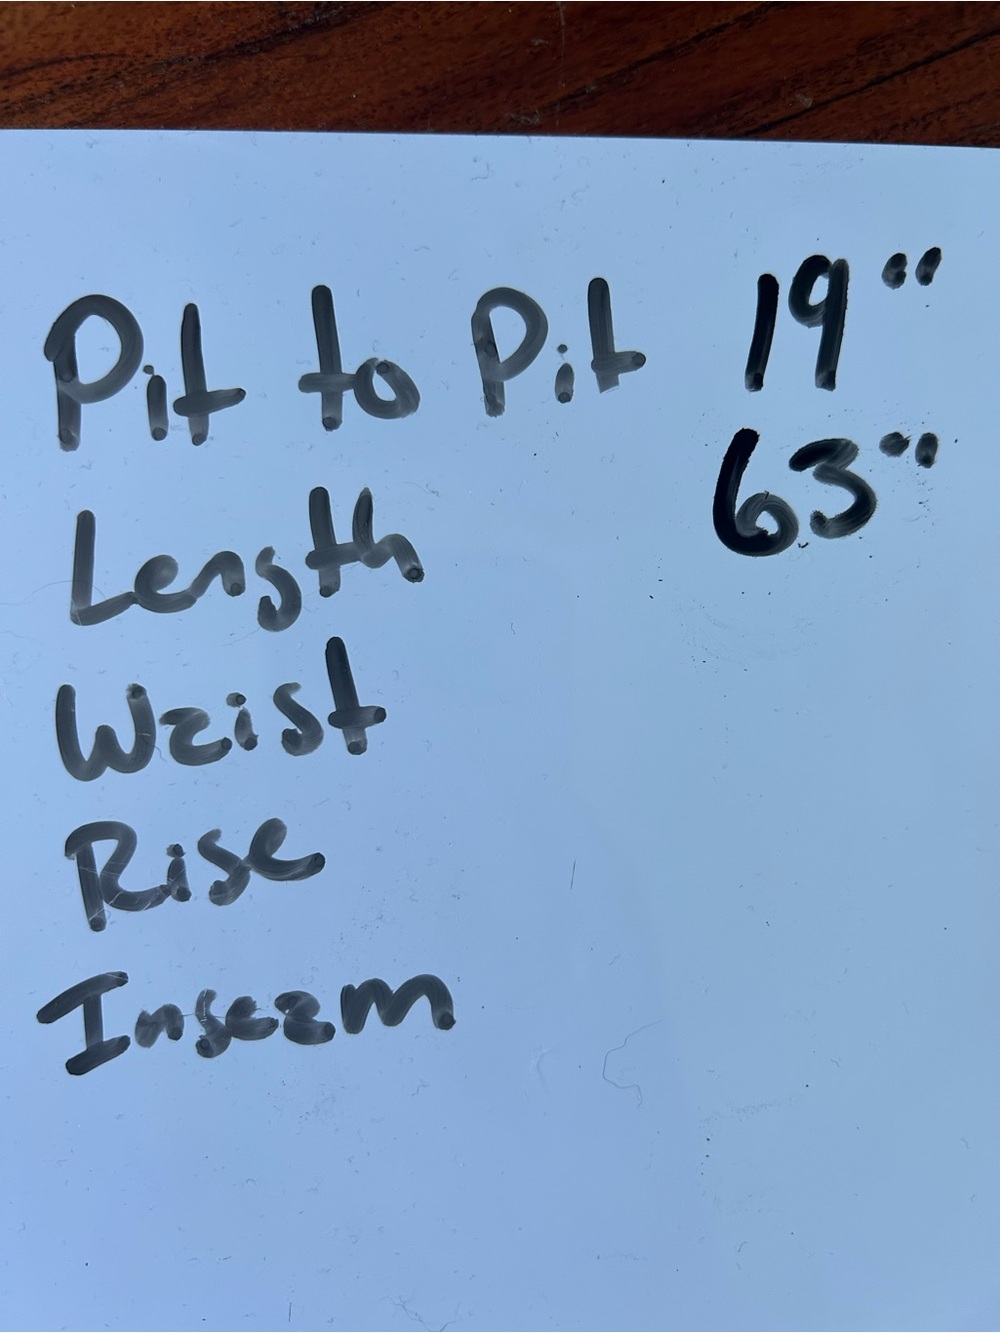 Pit to Pit 19"
Length 63"
Waist
Rise
Inseam